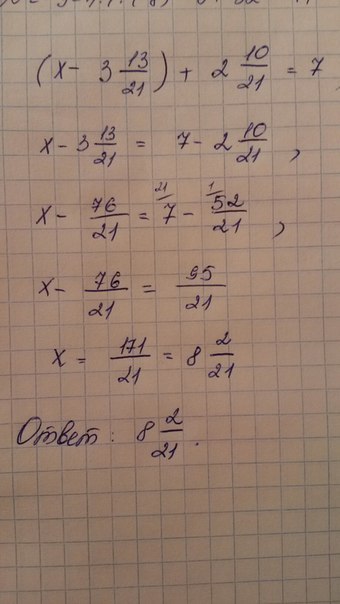 (x - 3 13/21) + 2 10/21 = 7
x - 3 13/21 = 7 - 2 10/21 ,
x - 76/21 = 21/ 7 - 1/ 52/21 ,
x - 76/21 = 95/21
x = 171/21 = 8 2/21
Ответ: 8 2/21 .